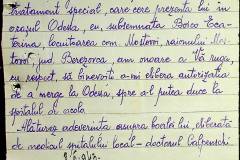 tratament special, care cere prezența lui în
orașul Odesa, eu, subsemnata Boico Eca-
terina, locuitoarea com. Mostovoi, raionului Mos-
tovoi, jud. Berezovca, am onoare a Vă ruga,
cu respect, să binevoiți a-mi elibera autorizația
de a merge la Odesa, spre a-l putea duce la
spitalul de acolo.
Alăturez adeverința asupra boalei lui, eliberată
de medicul spitalului local - doctorul